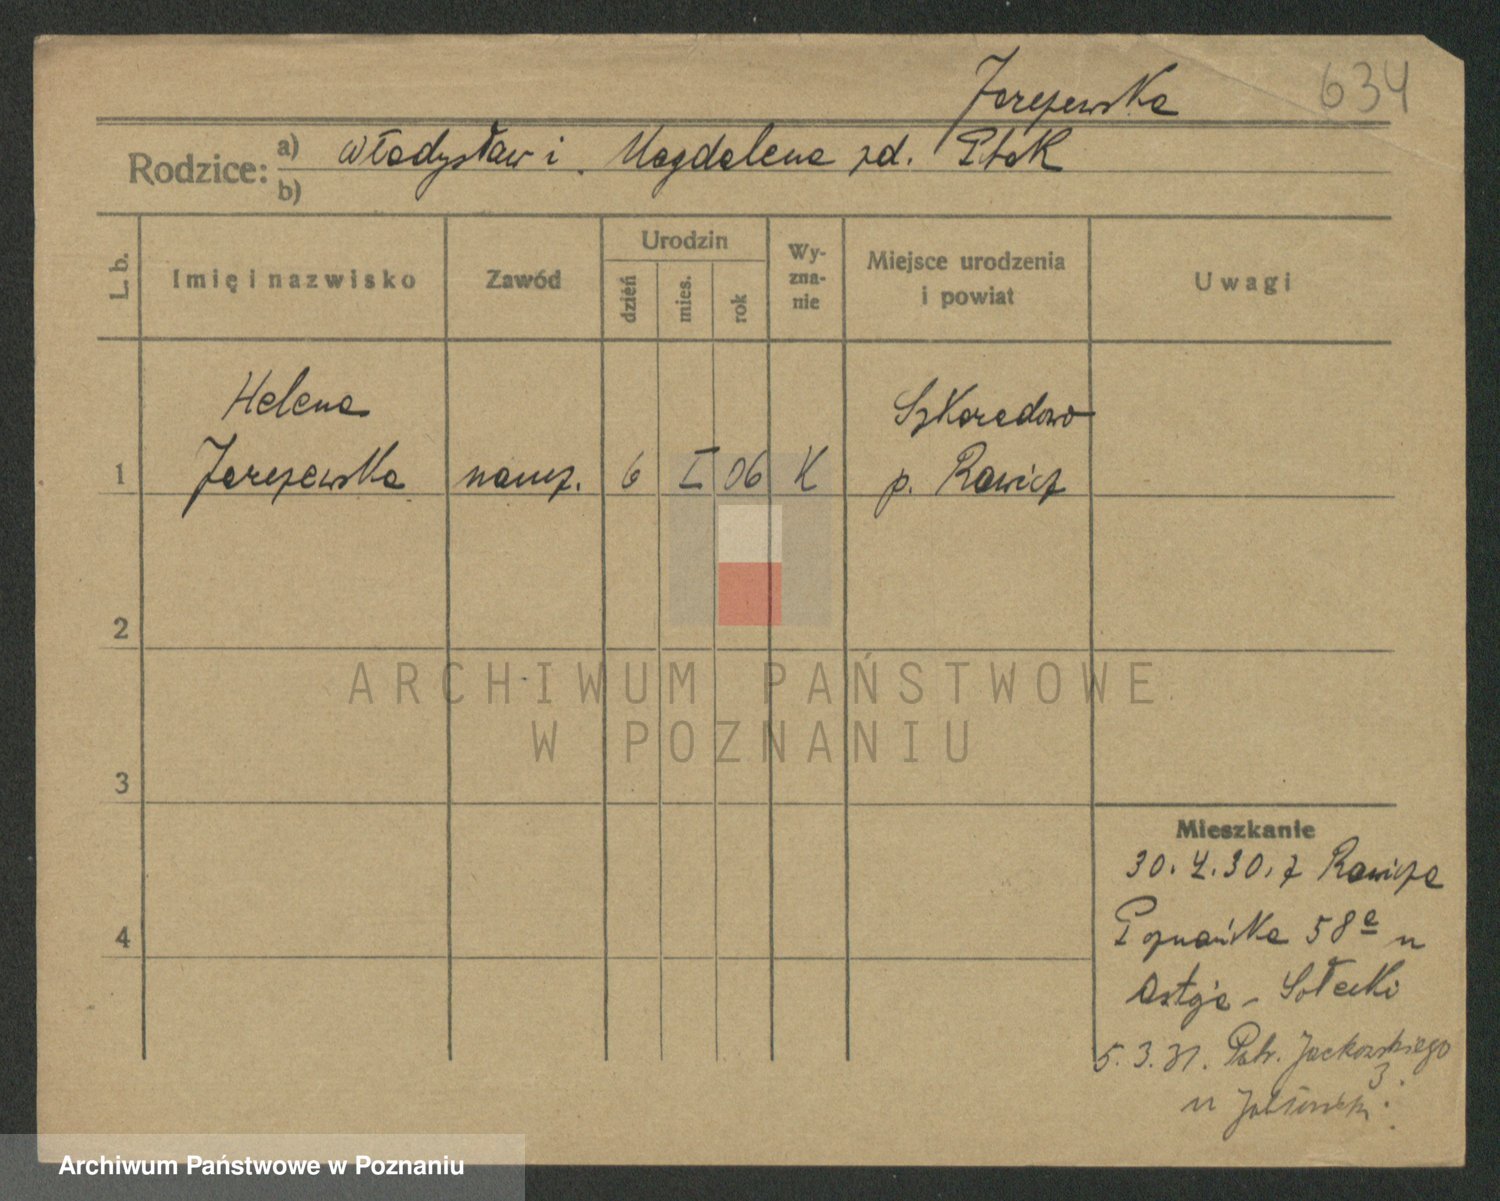 Jareżewska
634
Rodzice:
a) Władysław i Magdalena zd. Ptak
b)
L. b.
Imię i nazwisko
Zawód
Urodzin
dzień
mies.
rok
Wy-
zna-
nie
Miejsce urodzenia
i powiat
Uwagi
Helena
Szkaradowo
1
naucz. 6 I 06 K p. Rawicz
2
ARCHIWUM PAŃSTWOWE
W POZNANIU
3
Mieszkanie
30. 4. 30. z Rawicza
4
Poznańska 58a u
Sołecki
5. 3. 31. Patr. Jackowskiego
3.
u
Archiwum Państwowe w Poznaniu